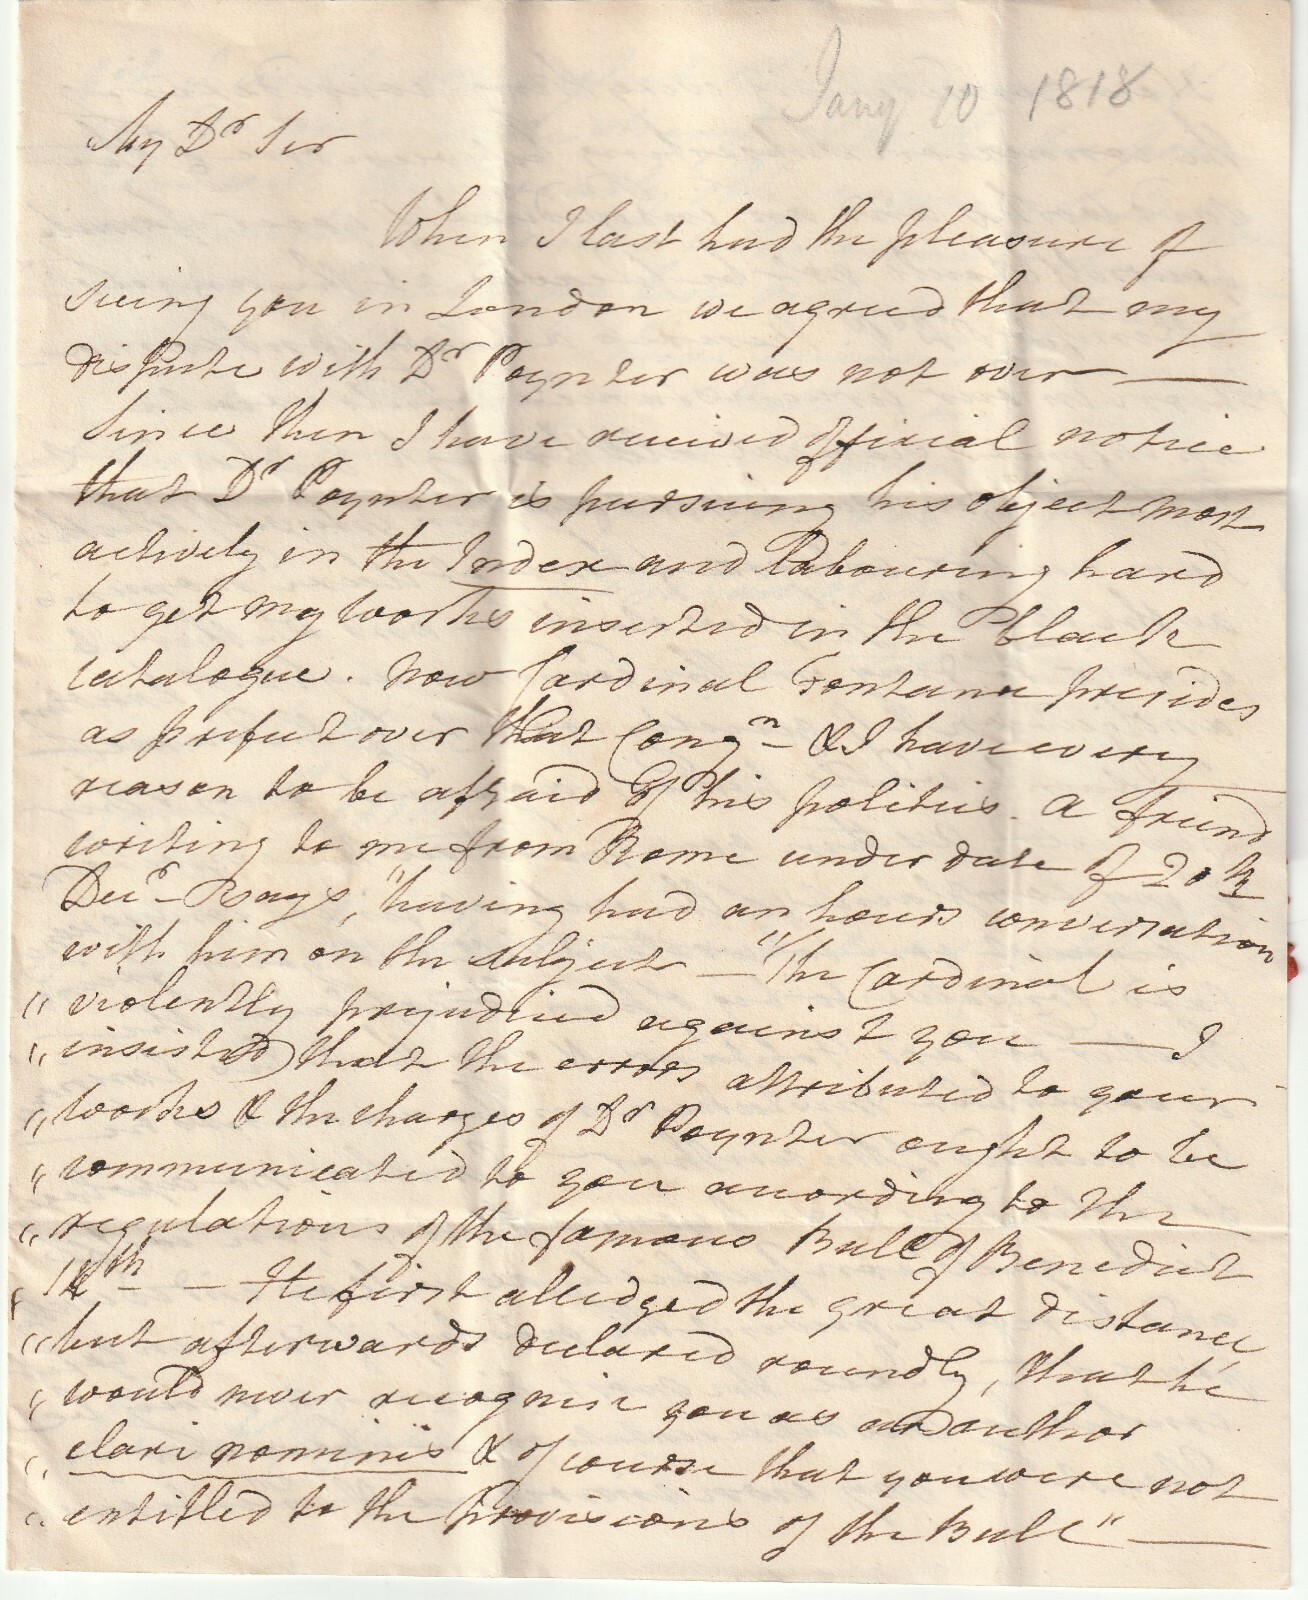 Jany 10 1818
My Dr Sir
When I last had the pleasure of
seeing you in London we agreed that my
dispute with Dr Poynter was not over —
Since then I have received official notice
that Dr Poynter is pursuing his object most
actively in the Index and labouring hard
to get my works inserted in the black
catalogue. Now Cardinal Fontana presides
as prefect over that Congn - & I have every
reason to be afraid of his politics. A friend
writing to me from Rome under date of 20th
Decr - Says, "having had an hours conversation
with him on the subject — "The Cardinal is
" violently prejudiced against you — I
" insisted that the errors attributed to your
" works & the charges of Dr Poynter ought to be
" communicated to you according to the
" regulations of the famous Bull of Benedict
14th - — He first alledged the great distance,
" but afterwards declared roundly, that he
" would never recognise you as an author
" clari nominis & of course that you were not
" entitled to the Provisions of the Bull" —